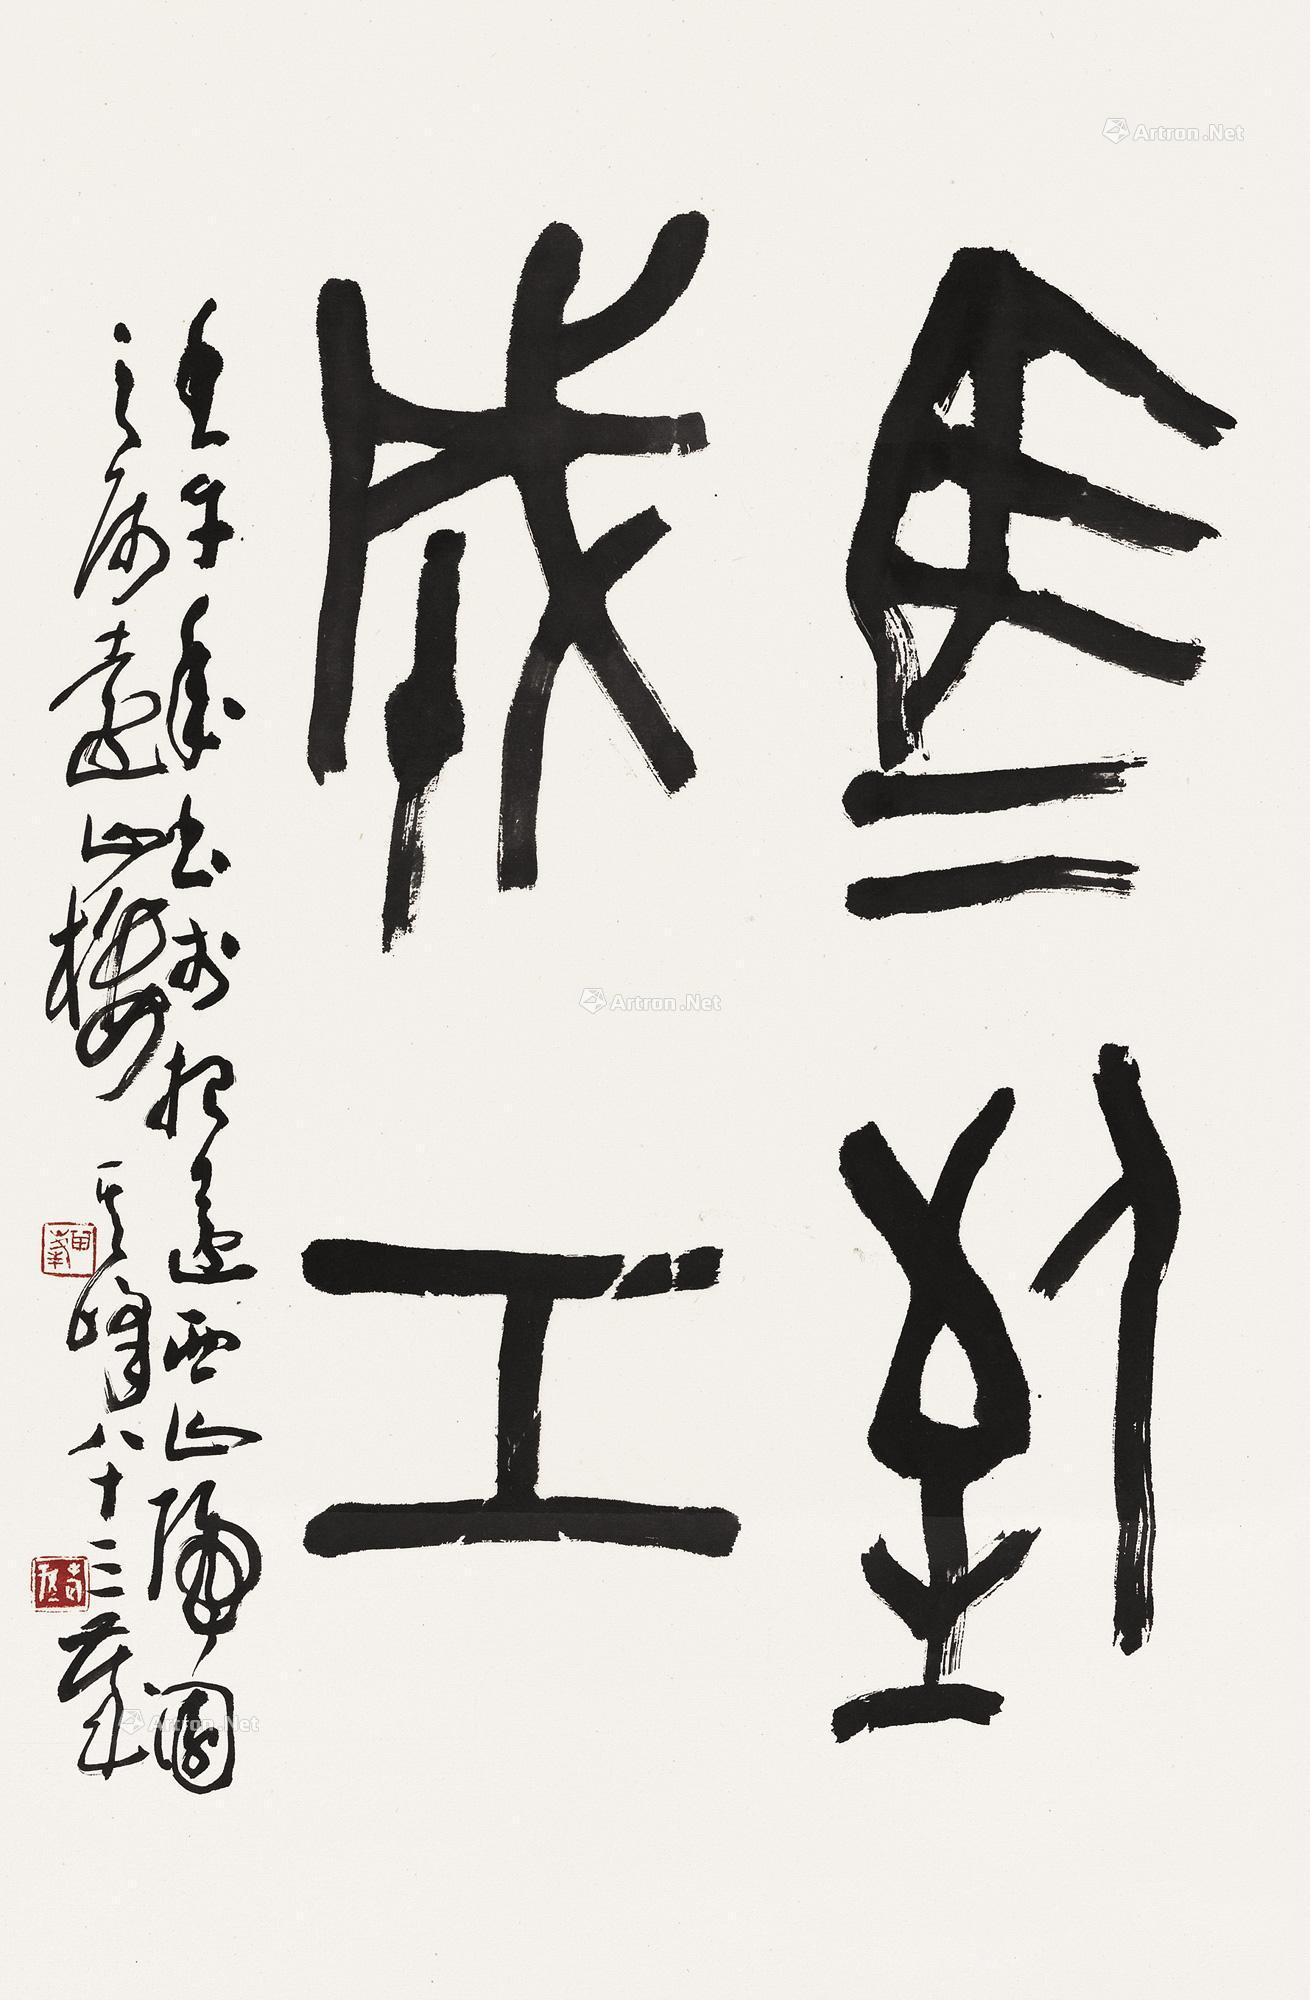 馬到
成工
壬午年書於招遠西山園
之遠山樓其峰八十三歲
Artron.Net
Artron.Net
Artron.Net